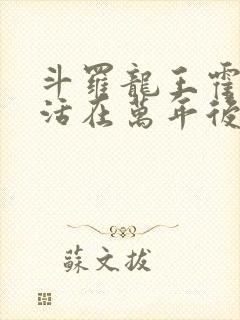 斗羅龍王霍
活在萬年後
蘇文拔